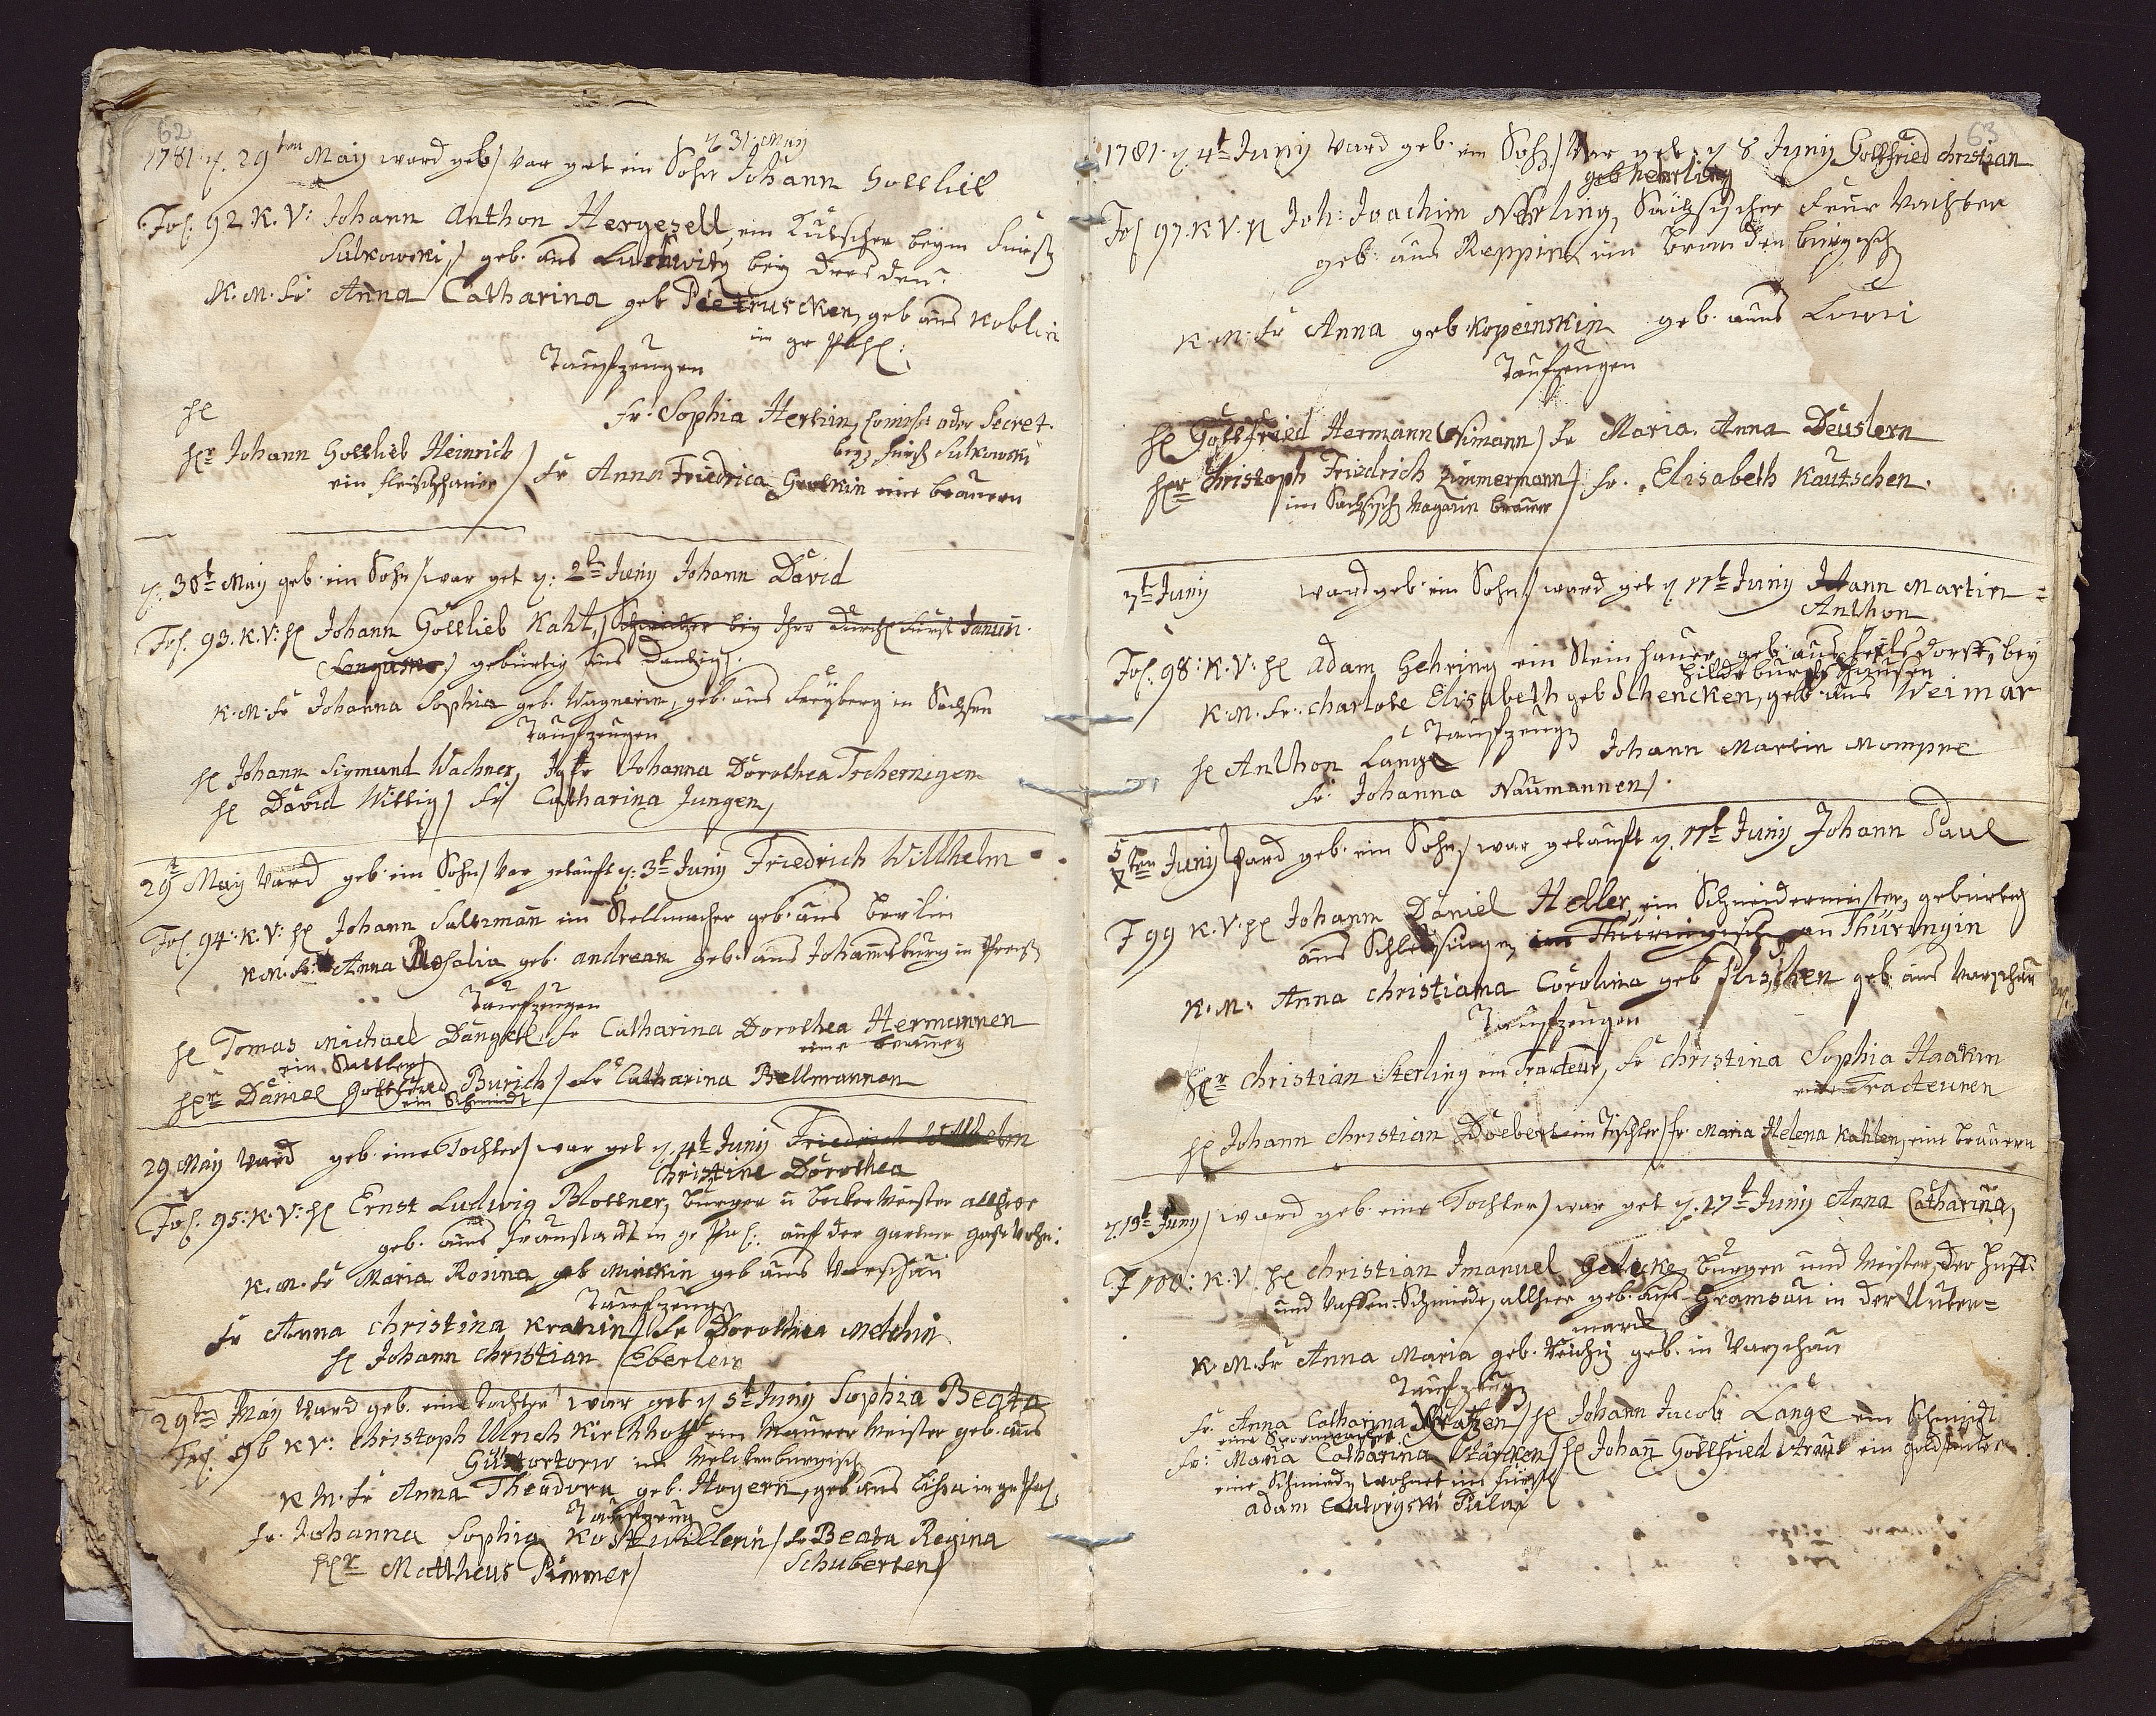 62
d. 31. May
1781. d. 29ten May ward geb/ war get ein Sohn Johann Gottlieb
Fol. 92. K. V: Johann Anthon Hergesell, ein Kutscher beym Fürst
Sulkowski,/ geb. aus Luchwitz bey Dresden.
K. M. fr: Anna Catharina geb Pietruscken, geb aus Koblin
in gr Pohl:
Taufzeugen
H
fr. Sophia Hertin, Comiss: oder Secret.
bey Fürst Sulkowski
Hr Johann Gottlieb Heinrich / fr Anna Friedrica Grotkin eine brauern
ein fleischhauer
d. 30t May geb. ein Sohn/ war get d: 2t Juny Johann David
Fol. 93. K. V: H Johann Gottlieb Kaht, bey Ihro Durchl Fürst Janusi
Sangusko/ gebürtig aus Dantzig/.
K. M. fr Johanna Sophia geb. Wagnerin, geb. aus Freyberg in Sachsen
Taufzeugen
H Johann Sigmund Wachner, Jgfr Johanna Dorothea Tschernigen
H David Wittig/ fr Catharina Jungen,
29t May ward geb. ein Sohn/ war getauft d: 3t Juny Friedrich Willhelm
Fol. 94: K. V: H Johann Saltzman ein Stellmacher geb. aus Berlin
K. M. fr: Anna Rosalia geb. andream geb. aus Johannsburg in Preuß
Taufzeugen
H Tomas Michael Dangkel, fr Catharina Dorothea Hermannen
ein Sattler/ eine brauern
Hr Daniel Gottfried Burich/ fr Catharina Bellmannen
ein Schmidt
29 May ward geb. eine Tochter/ war get d. 4t Juny Friedrich Willhelm
Christine Dorothea
Fol. 95: K. V: H Ernst Ludwig Blottner, Bürger u Becker Meister allhier
geb. aus Fraustadt in gr Pohl:. auf der gartner gaße wohn:
K. M. fr Maria Rosina geb Minckin geb aus Warschau
Taufzeug
fr Anna Christina Kratzin/ fr Dorothea Melchin
H Johann Christian Eberlein
29ten May ward geb. eine Tochter war get d 5t Juny Sophia Beata
Fol. 96 K V: Christoph Ulrich Kirchhoff ein Maurer Meister geb. aus
im Mecklenburgisch
K M. fr Anna Theadora geb. Hoyern, geb aus Lissa in gr Pohl:
Taufzeug
fr. Johanna Sophia Kostwillerin/ fr Beata Regina
Hr Mattheus Pimmer/ Schuberten/
63
1781. d 4t Juny ward geb. ein Sohn/ war get. d 8 Juny Gottfried Christian
geb Nehrling
Fol 97. K. V. H Joh: Joachim Nehrling, Sächsischer Feur Wächter
geb. aus Reppin im Brandenburgisch
K. M. fr Anna geb. Kopeinskin geb. auns Lowi
Taufzeugen
H Gottfried Hermann Nimann/ fr Maria Anna Deuslern
Hr Christoph Friedrich Zimmermann/ fr. Elisabeth Kautschen.
im Sachsisch Magazin brauer
7t Juny ward geb. ein Sohn/ ward get d 11t Juny Johann Martin =
Anthon
Fol. 98: K. V: H Adam Gehring ein Steinhauer, geb. aus dorff, bey
Hildburghausen
K. M. fr: Charlote Elisabeth geb Schencken, geb aus Weimar
Taufzeug
H Anthon Lange Johann Martin Mompre
fr: Johanna Naumannen/.
5ten Juny ward geb. ein Sohn/ war getauft d. 11t Juny Johann Paul
F 99 K. V. H Johann Daniel Heller, ein Schneidermeister, gebürtig
aus Schleusingen, im Thüringisch an Thüringin
K. M: Anna Christiana Carolina geb Plaschen geb aus Warschau
Taufzeugen
Hr Christian Sterling ein Tracteur, fr Christina Sophia Haakin
eine Tracteuren
H Johann Christian Doebert ein Tischler/ fr. Maria Helena Kahlen, eine Brauern
d. 15t Juny/ ward geb. eine Tochter/ war get d. 17t Juny Anna Catharina,
F 100: K. V. H Christian Imanuel Gedecke, Bürger und Meister, der Huff:
und Waffen: Schmiede, allhier geb. aus Gramsau in der Unter=
marck
K. M. fr Anna Maria geb. geb. in Warschau
Taufzeug
fr. Anna Catharina Kratzen/ H Johann Jacob Lange ein Schmidt
fr: Maria Catharina Starcken/ H Johann Gottfried Straus ein
eine Schmiedin wohnet im Fürst
Adam Palais